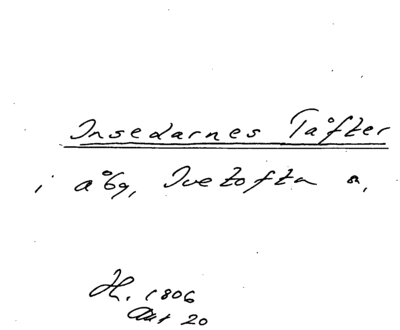 Insedarnes Tåfter
i åbg, Ivetofta s,
H. 1806
Akt 20